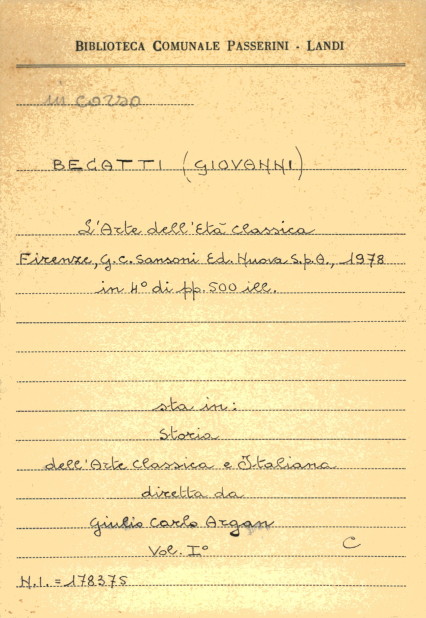 BIBLIOTECA COMUNALE PASSERINI - LANDI
in corso
BECATTI (GIOVANNI)
L'Arte dell'Età Classica
Firenze, G.C. Sansoni Ed. Nuova S.p.A., 1978
in 4° di pp. 500 ill.
sta in:
Storia
dell'Arte Classica e Italiana
diretta da
Giulio Carlo Argan
Vol. I°
C
N.I. = 178375